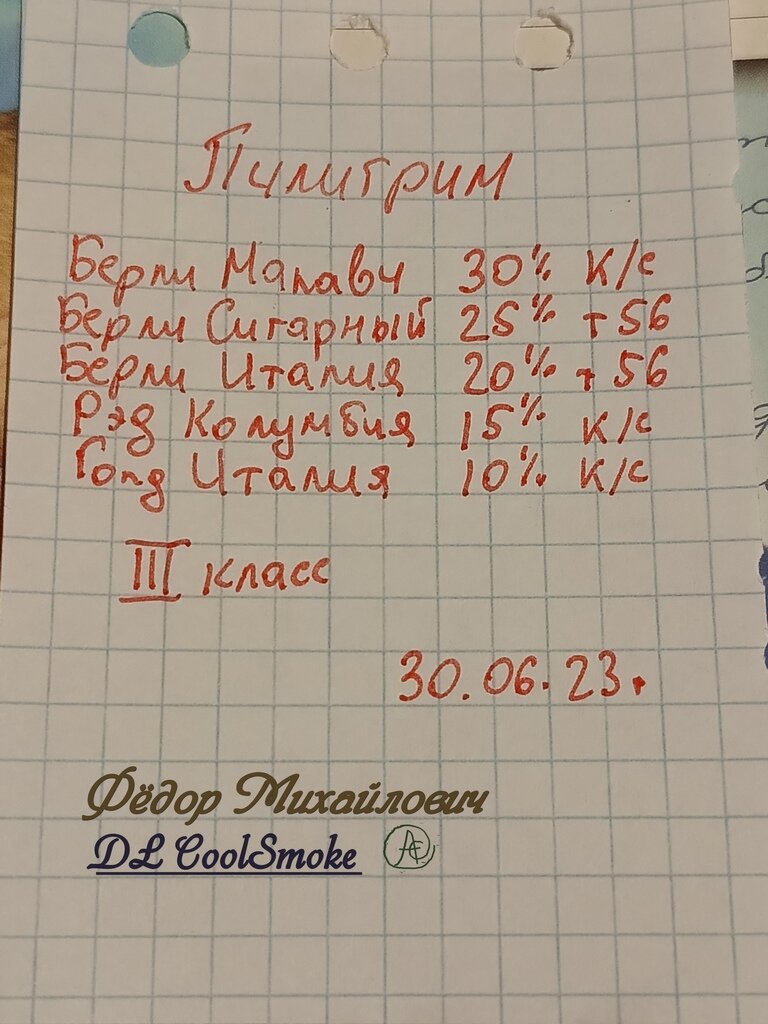 Пилигрим
Берли Малави 30% К/с
Берли Сигарный 25% т 56
Берли Италия 20% т 56
Рэд Колумбия 15% К/с
Голд Италия 10% К/с
III класс
30.06.23.
Фёдор Михайлович
DL CoolSmoke